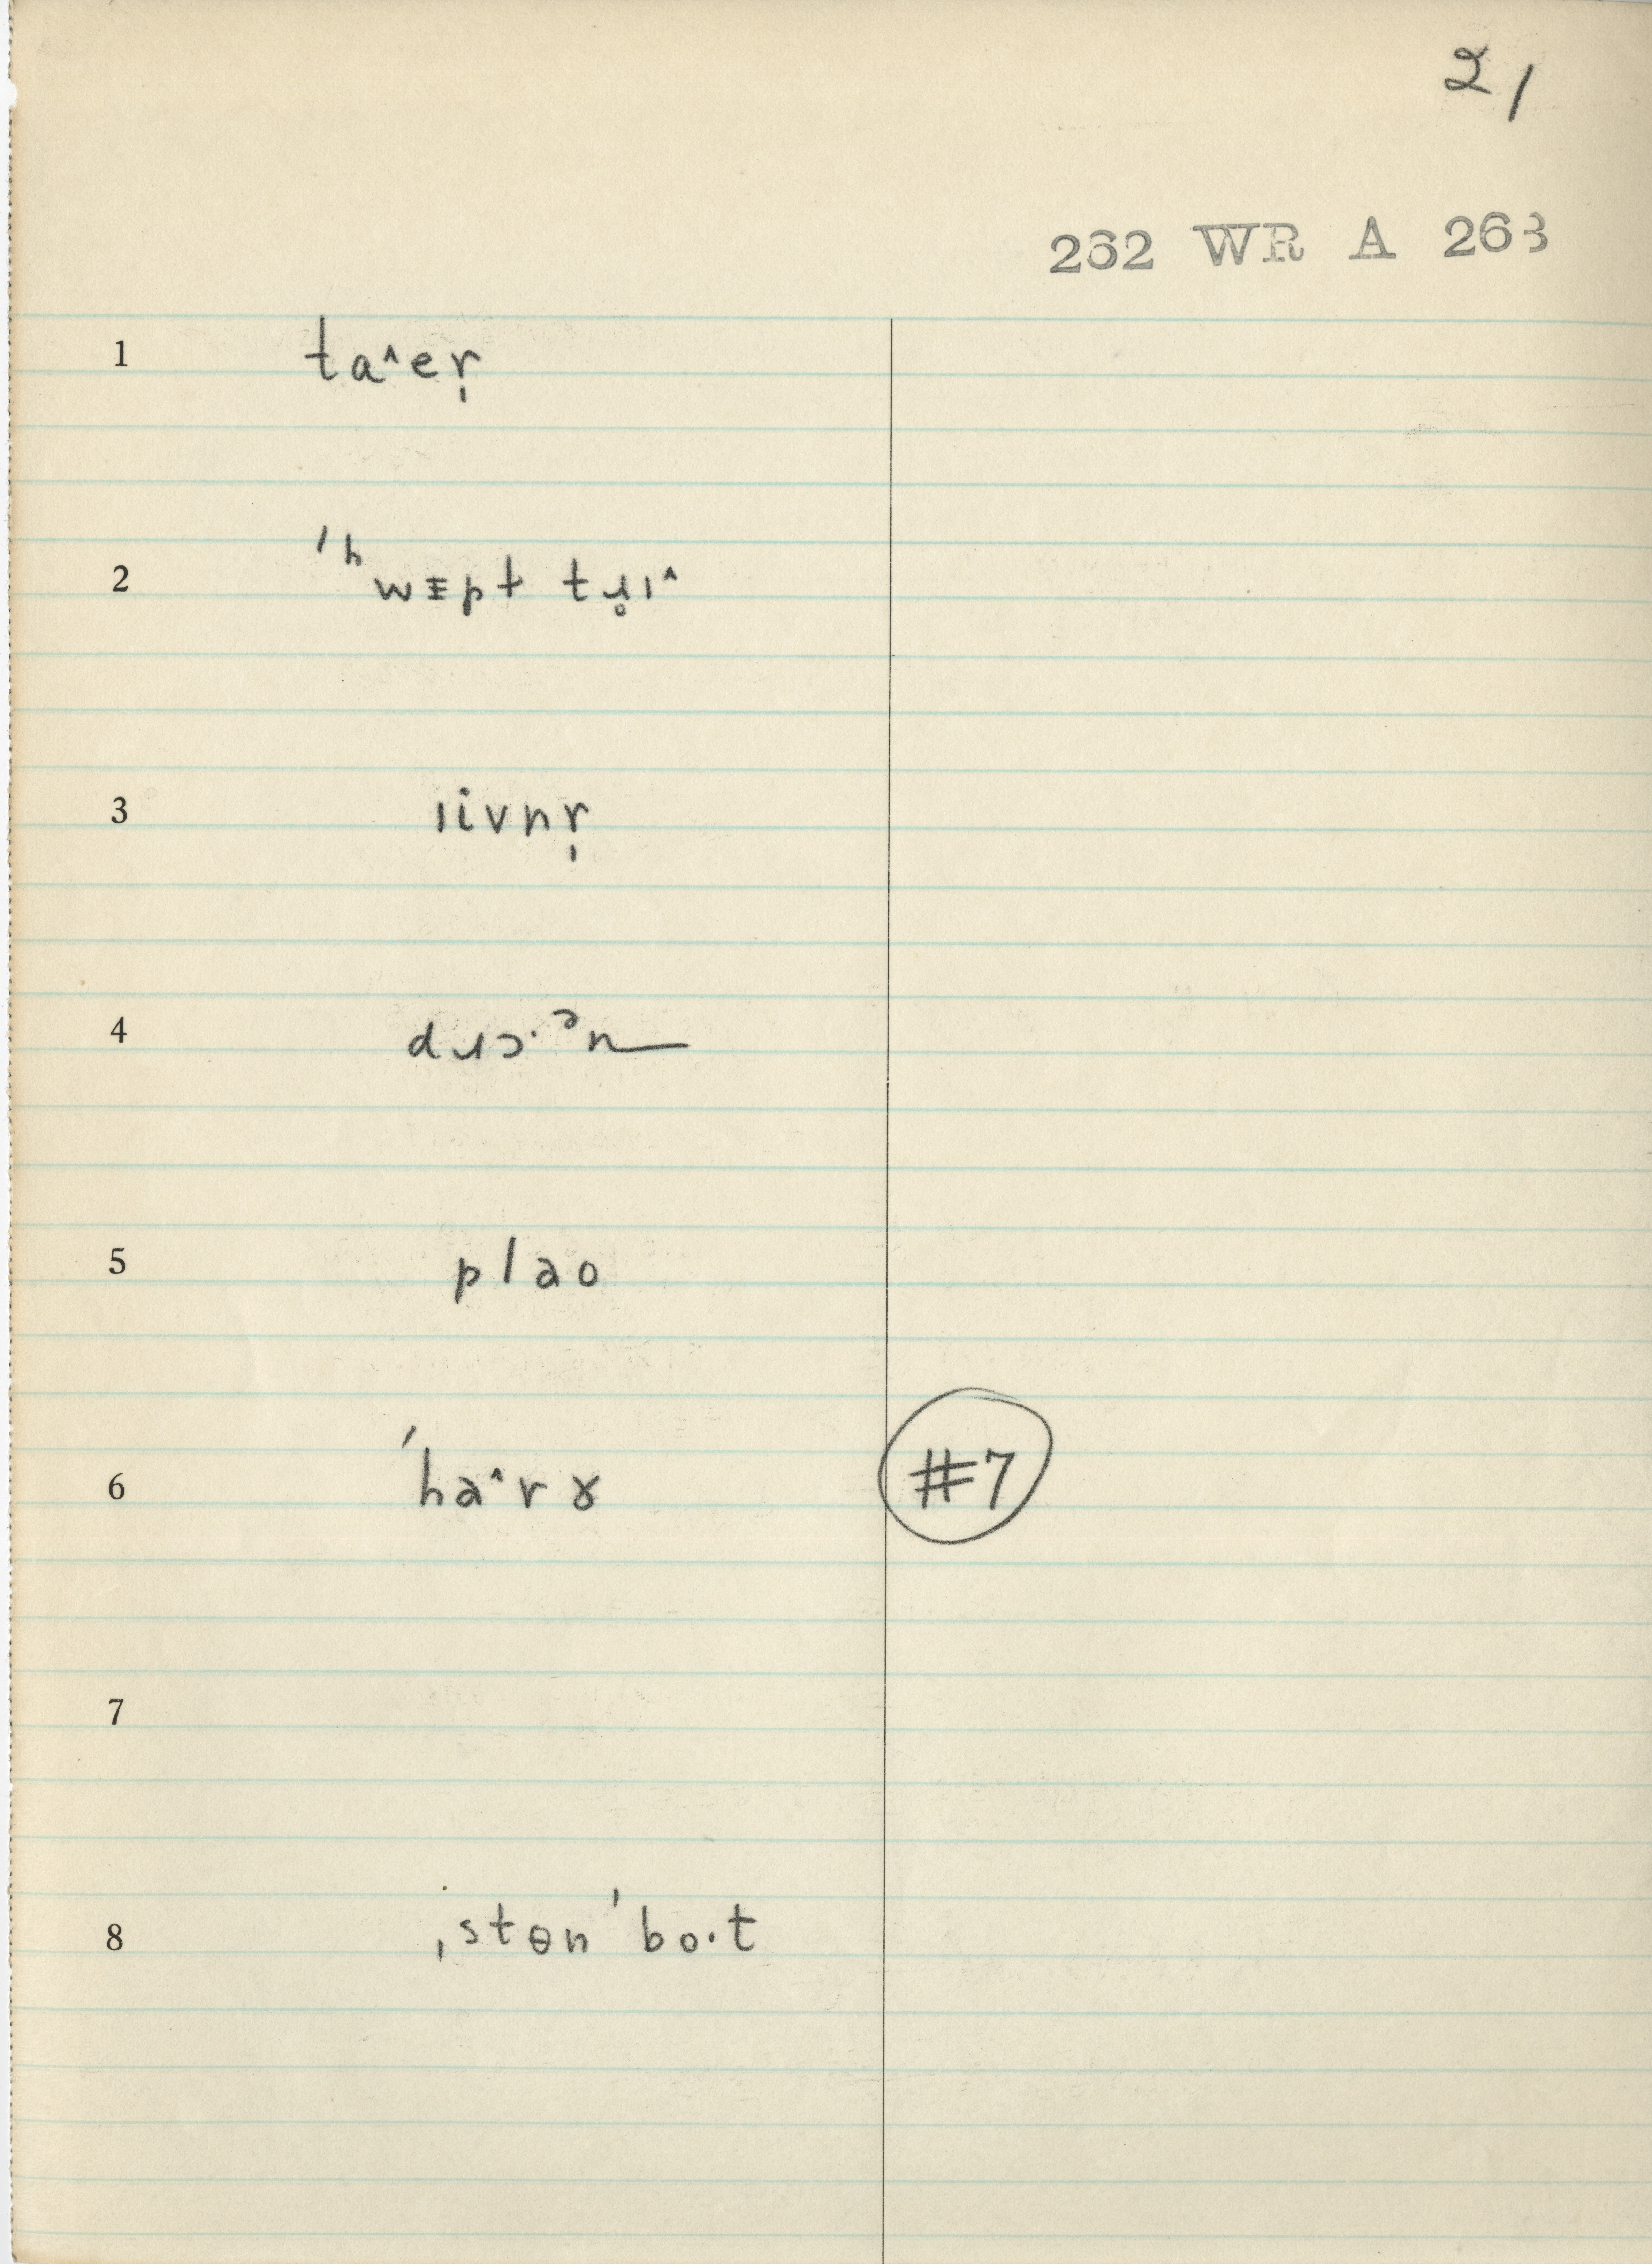 21
262 WR A 263
1 taˆer̩
2 ˈʰwᵻpt tɹ̥ɪˆ
3 ɪivnr̩
4 dɹɔ·ᵊn
5 plao
6 ˈhaˆrɤ #7
7
8 ˌstɵnˈbo·t